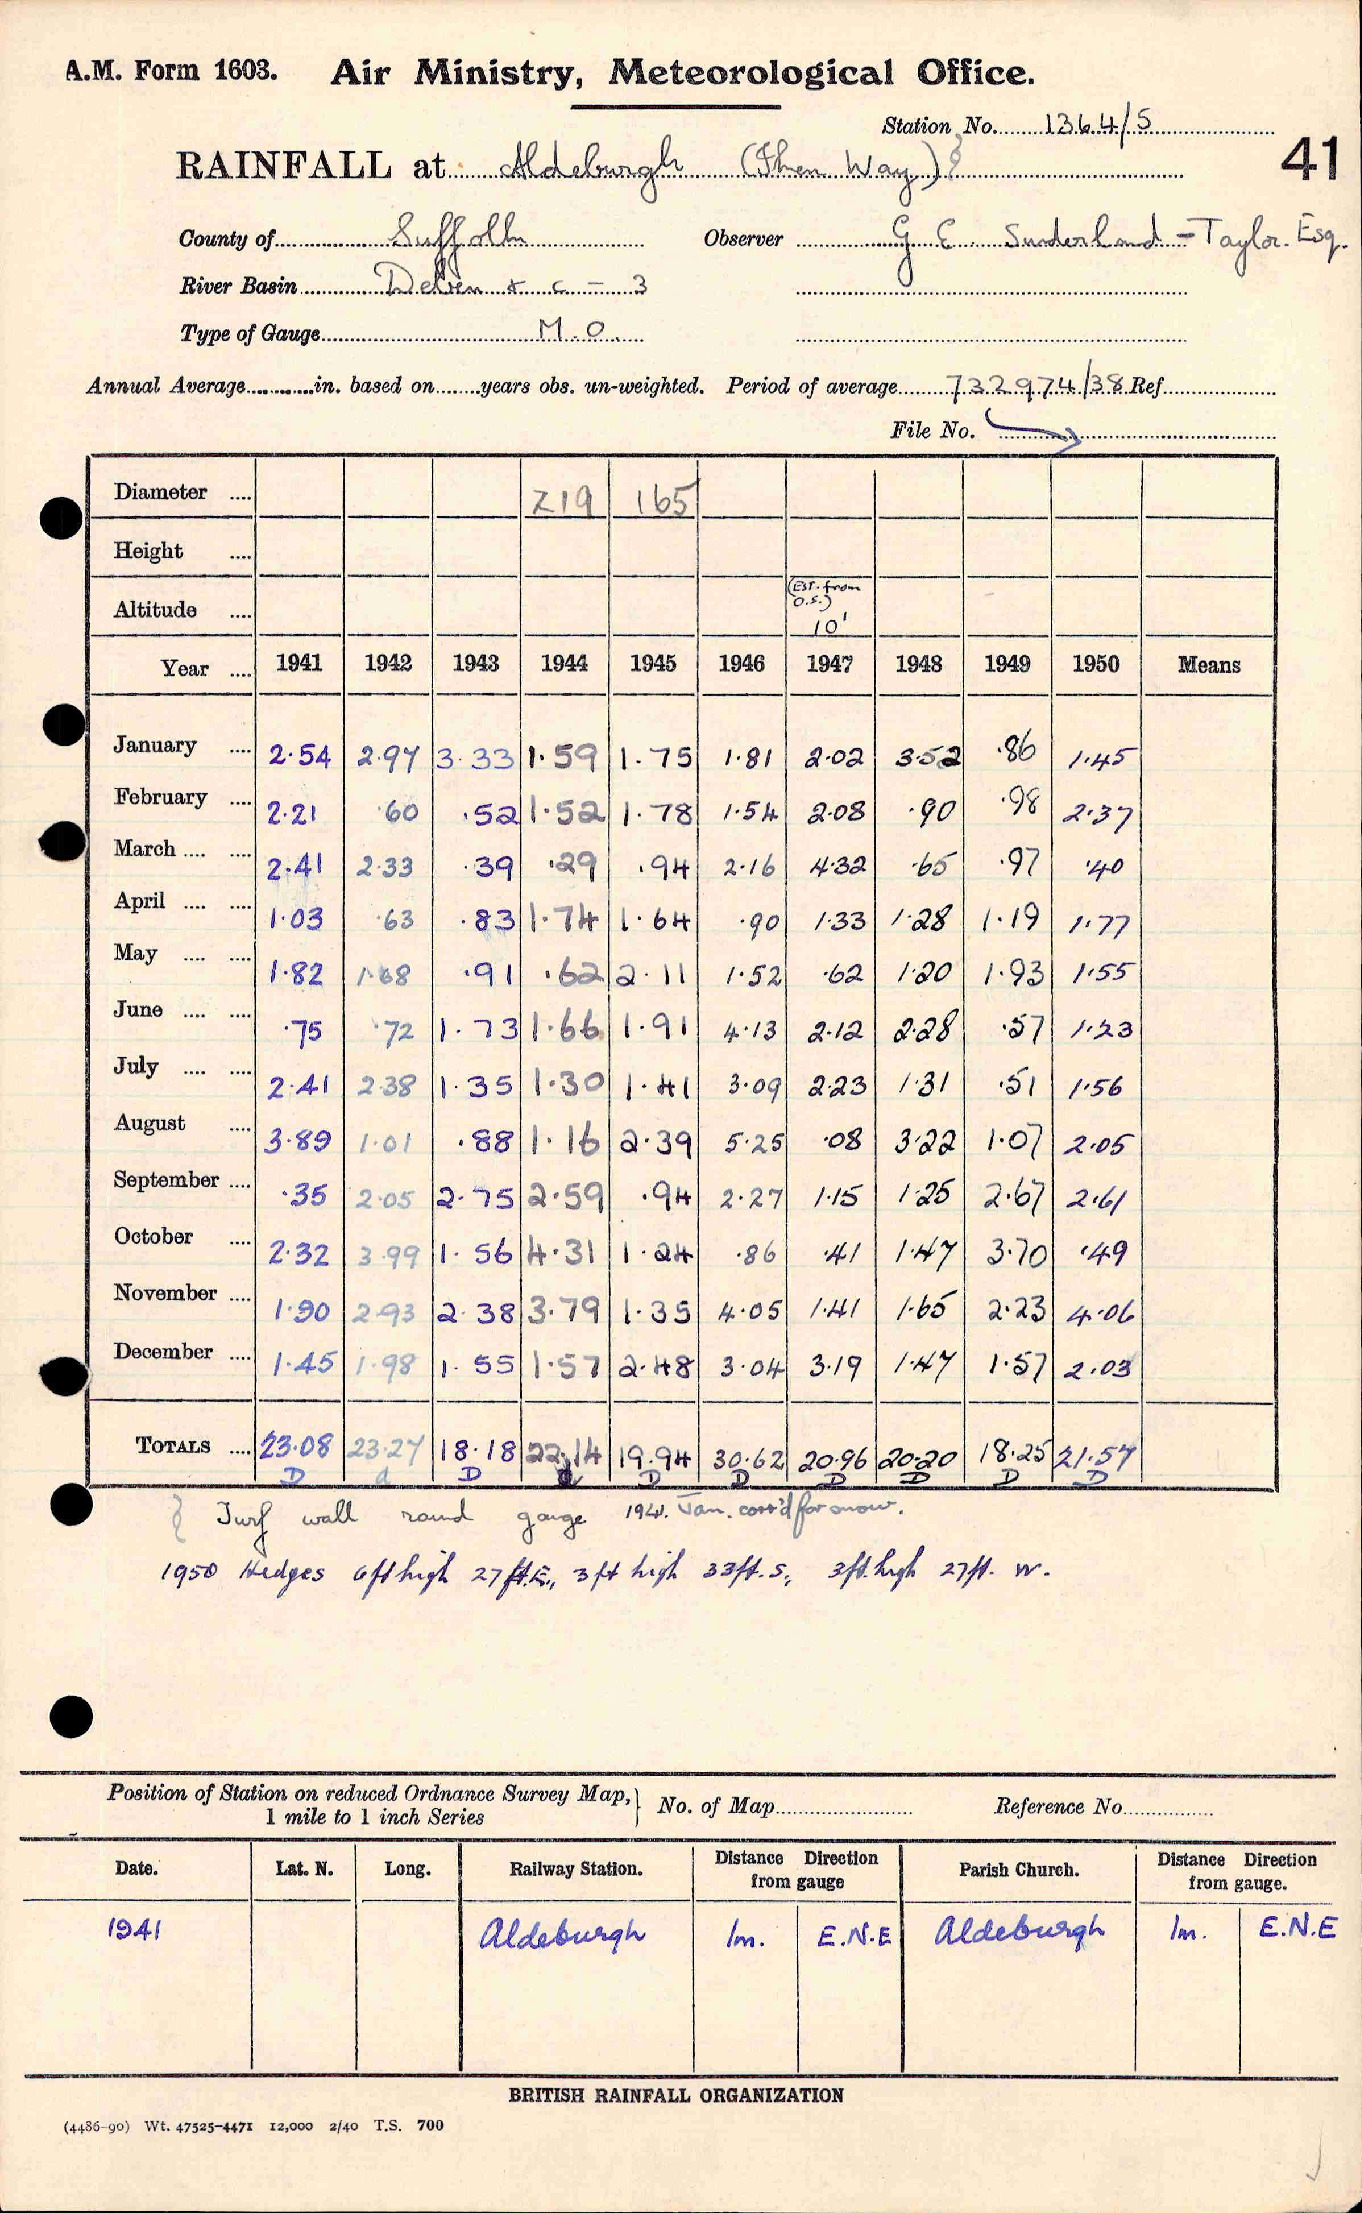 A.M. Form 1603. Air Ministry, Meteorological Office.
Station No. 1364/5
41
RAINFALL at Aldeburgh (Ihen Way) }
County of Suffolk Observer G E. Sunderland - Taylor. Esq.
River Basin Deben & c - 3
Type of Gauge M.O.
Annual Average in. based on years obs. un-weighted. Period of average 732974/38 Ref
File No.
Diameter .... 219 165
Height ....
Altitude .... (Est. from O.S.) 10'
Year .... 1941 1942 1943 1944 1945 1946 1947 1948 1949 1950 Means
January .... 2.54 2.97 3.33 1.59 1.75 1.81 2.02 3.52 .86 1.45
February .... 2.21 .60 .52 1.52 1.78 1.54 2.08 .90 .98 2.37
March .... .... 2.41 2.33 .39 .29 .94 2.16 4.32 .65 .97 .40
April .... .... 1.03 .63 .83 1.74 1.64 .90 1.33 1.28 1.19 1.77
May .... .... 1.82 1.68 .91 .62 2.11 1.52 .62 1.20 1.93 1.55
June .... .... .75 .72 1.73 1.66 1.91 4.13 2.12 2.28 .57 1.23
July .... .... 2.41 2.38 1.35 1.30 1.41 3.09 2.23 1.31 .51 1.56
August .... 3.89 1.01 .88 1.16 2.39 5.25 .08 3.22 1.07 2.05
September .... .35 2.05 2.75 2.59 .94 2.27 1.15 1.25 2.67 2.61
October .... 2.32 3.99 1.56 4.31 1.24 .86 .41 1.47 3.70 .49
November .... 1.90 2.93 2.38 3.79 1.35 4.05 1.41 1.65 2.23 4.06
December .... 1.45 1.98 1.55 1.57 2.48 3.04 3.19 1.47 1.57 2.03
TOTALS .... 23.08 23.27 18.18 22.14 19.94 30.62 20.96 20.20 18.25 21.57
D a D d D D D D D D
} Turf wall round gauge 1941. Jan. corr'd for snow.
1950 Hedges 6ft high 27ft.E., 3ft high 33ft.S., 3ft.high 27ft. W.
Position of Station on reduced Ordnance Survey Map, } No. of Map Reference No.
1 mile to 1 inch Series
Date. Lat. N. Long. Railway Station. Distance from gauge Direction Parish Church. Distance Direction from gauge.
1941 Aldeburgh 1m. E.N.E Aldeburgh 1m. E.N.E
BRITISH RAINFALL ORGANIZATION
(4486-90) Wt. 47525-4471 12,000 2/40 T.S. 700